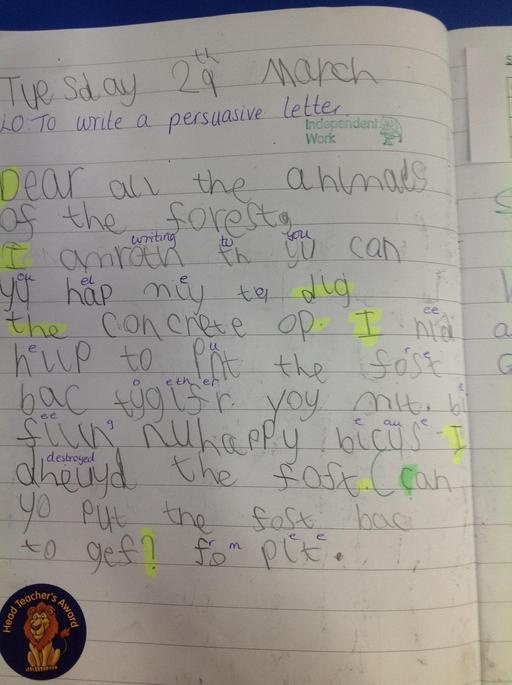 Tuesday 29th March
LO To write a persuasive letter.
Independent
Work
Dear all the animals
of the forest
writing to you
I amroth th yu can
ou el e
yu hap miy to dig
the concrete op. I nid
ee
hulp to Pnt the fost
e u
bac tygifr. yoy mit. bi
o ether
fiin nuhappy bicus I
ee g e au e
destroyed
the fost. Can
yo put the fost bac
to gef? fom pite.
Head Teacher's Award